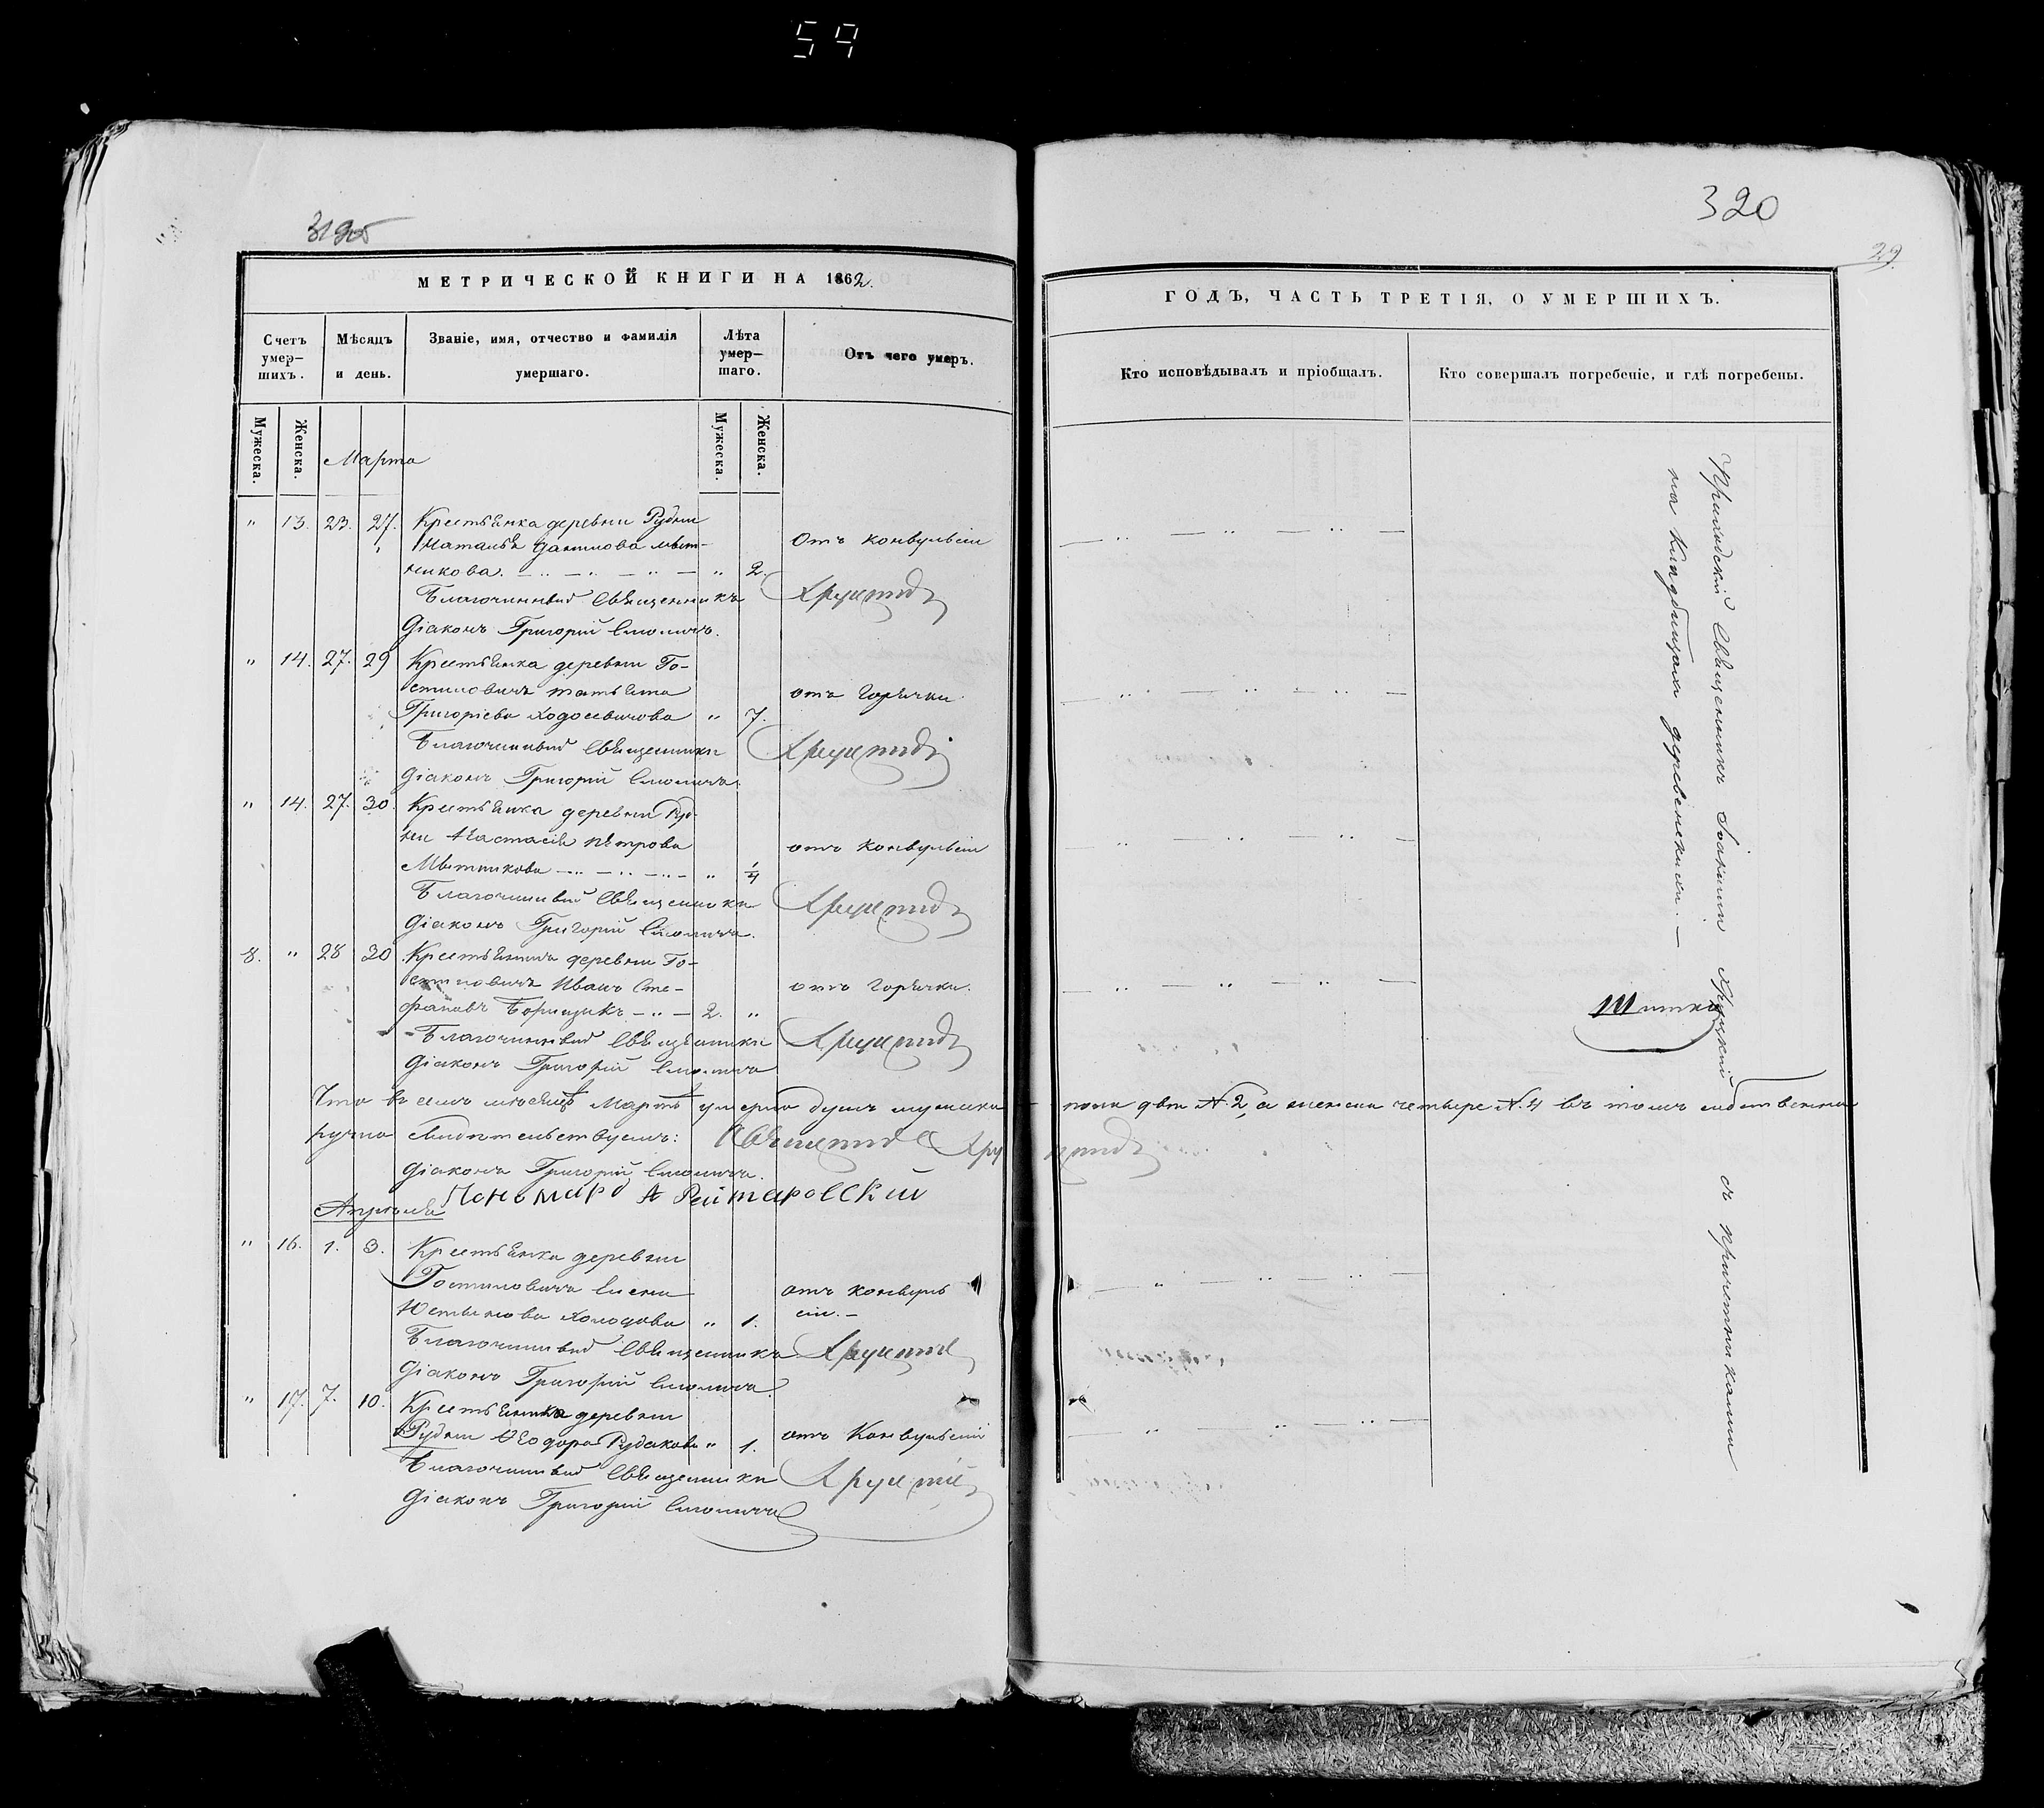 59
320
29
МЕТРИЧЕСКОЙ КНИГИ НА 1862.
Счетъ умершихъ.
Мѣсяцъ и день.
Званіе, имя, отчество и фамилія умершаго.
Лѣта умершаго.
Отъ чего умеръ.
Мужеска.
Женска.
Мужеска.
Женска.
Марта
" 13. 23. 27. Крестьянка деревни Рудни
Наталья Данилова Мытникова. " 2. Отъ конвульсіи
Благочинный Священникъ
Діаконъ Григорій
" 14. 27. 29 Крестьянка деревни Гостиловичъ Татьяна
Григоріева Ходосевичова " 7. отъ Горячки
Благочинный Священникъ
Діаконъ Григорій
" 14. 27. 30. Крестьянка деревни Рудни Настасія Петрова
Мытникова " 1/4 отъ конвульсіи
Благочинный Священникъ
Діаконъ Григорій
8. " 28 30 Крестьянинъ деревни Гостиловичъ Иванъ Стефановъ Борищикъ 2. " отъ Горячки.
Благочинный Священникъ
Діаконъ Григорій
Что въ семъ мѣсяцѣ Мартѣ умерло душъ мужеска пола двѣ №. 2, а женска четыре №. 4 въ томъ собственно
ручно свидѣтельствуемъ:
Діаконъ Григорій
Пономарь А Рейтаровскій
Апрѣля
" 16. 1. 3. Крестьянка деревни
Гостиловичъ Елена
Устинова Холодова " 1. отъ конвульсіи.
Благочинный Священникъ
Діаконъ Григорій
" 17. 7. 10. Крестьянка деревни
Рудни Ѳеодора Рудакова " 1. отъ Конвульсіи
Благочинный Священникъ
Діаконъ Григорій
ГОДЪ, ЧАСТЬ ТРЕТІЯ, О УМЕРШИХЪ.
Кто исповѣдывалъ и пріобщалъ.
Кто совершалъ погребеніе, и гдѣ погребены.
Приходскій Священникъ Іоаннъ съ причетниками
на кладбищахъ деревенскихъ.